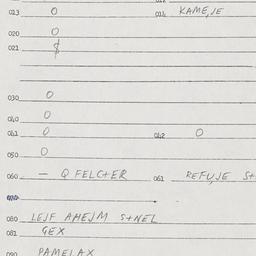 014 KAMEJE
013 0
020 0
021 $
030 0
040 0
041 0 042 0
050 0
060 — Q FELCTER 061 REFUJE
080 LEJF AHEJM S+NEL
081 GEX
090 PAMELAX